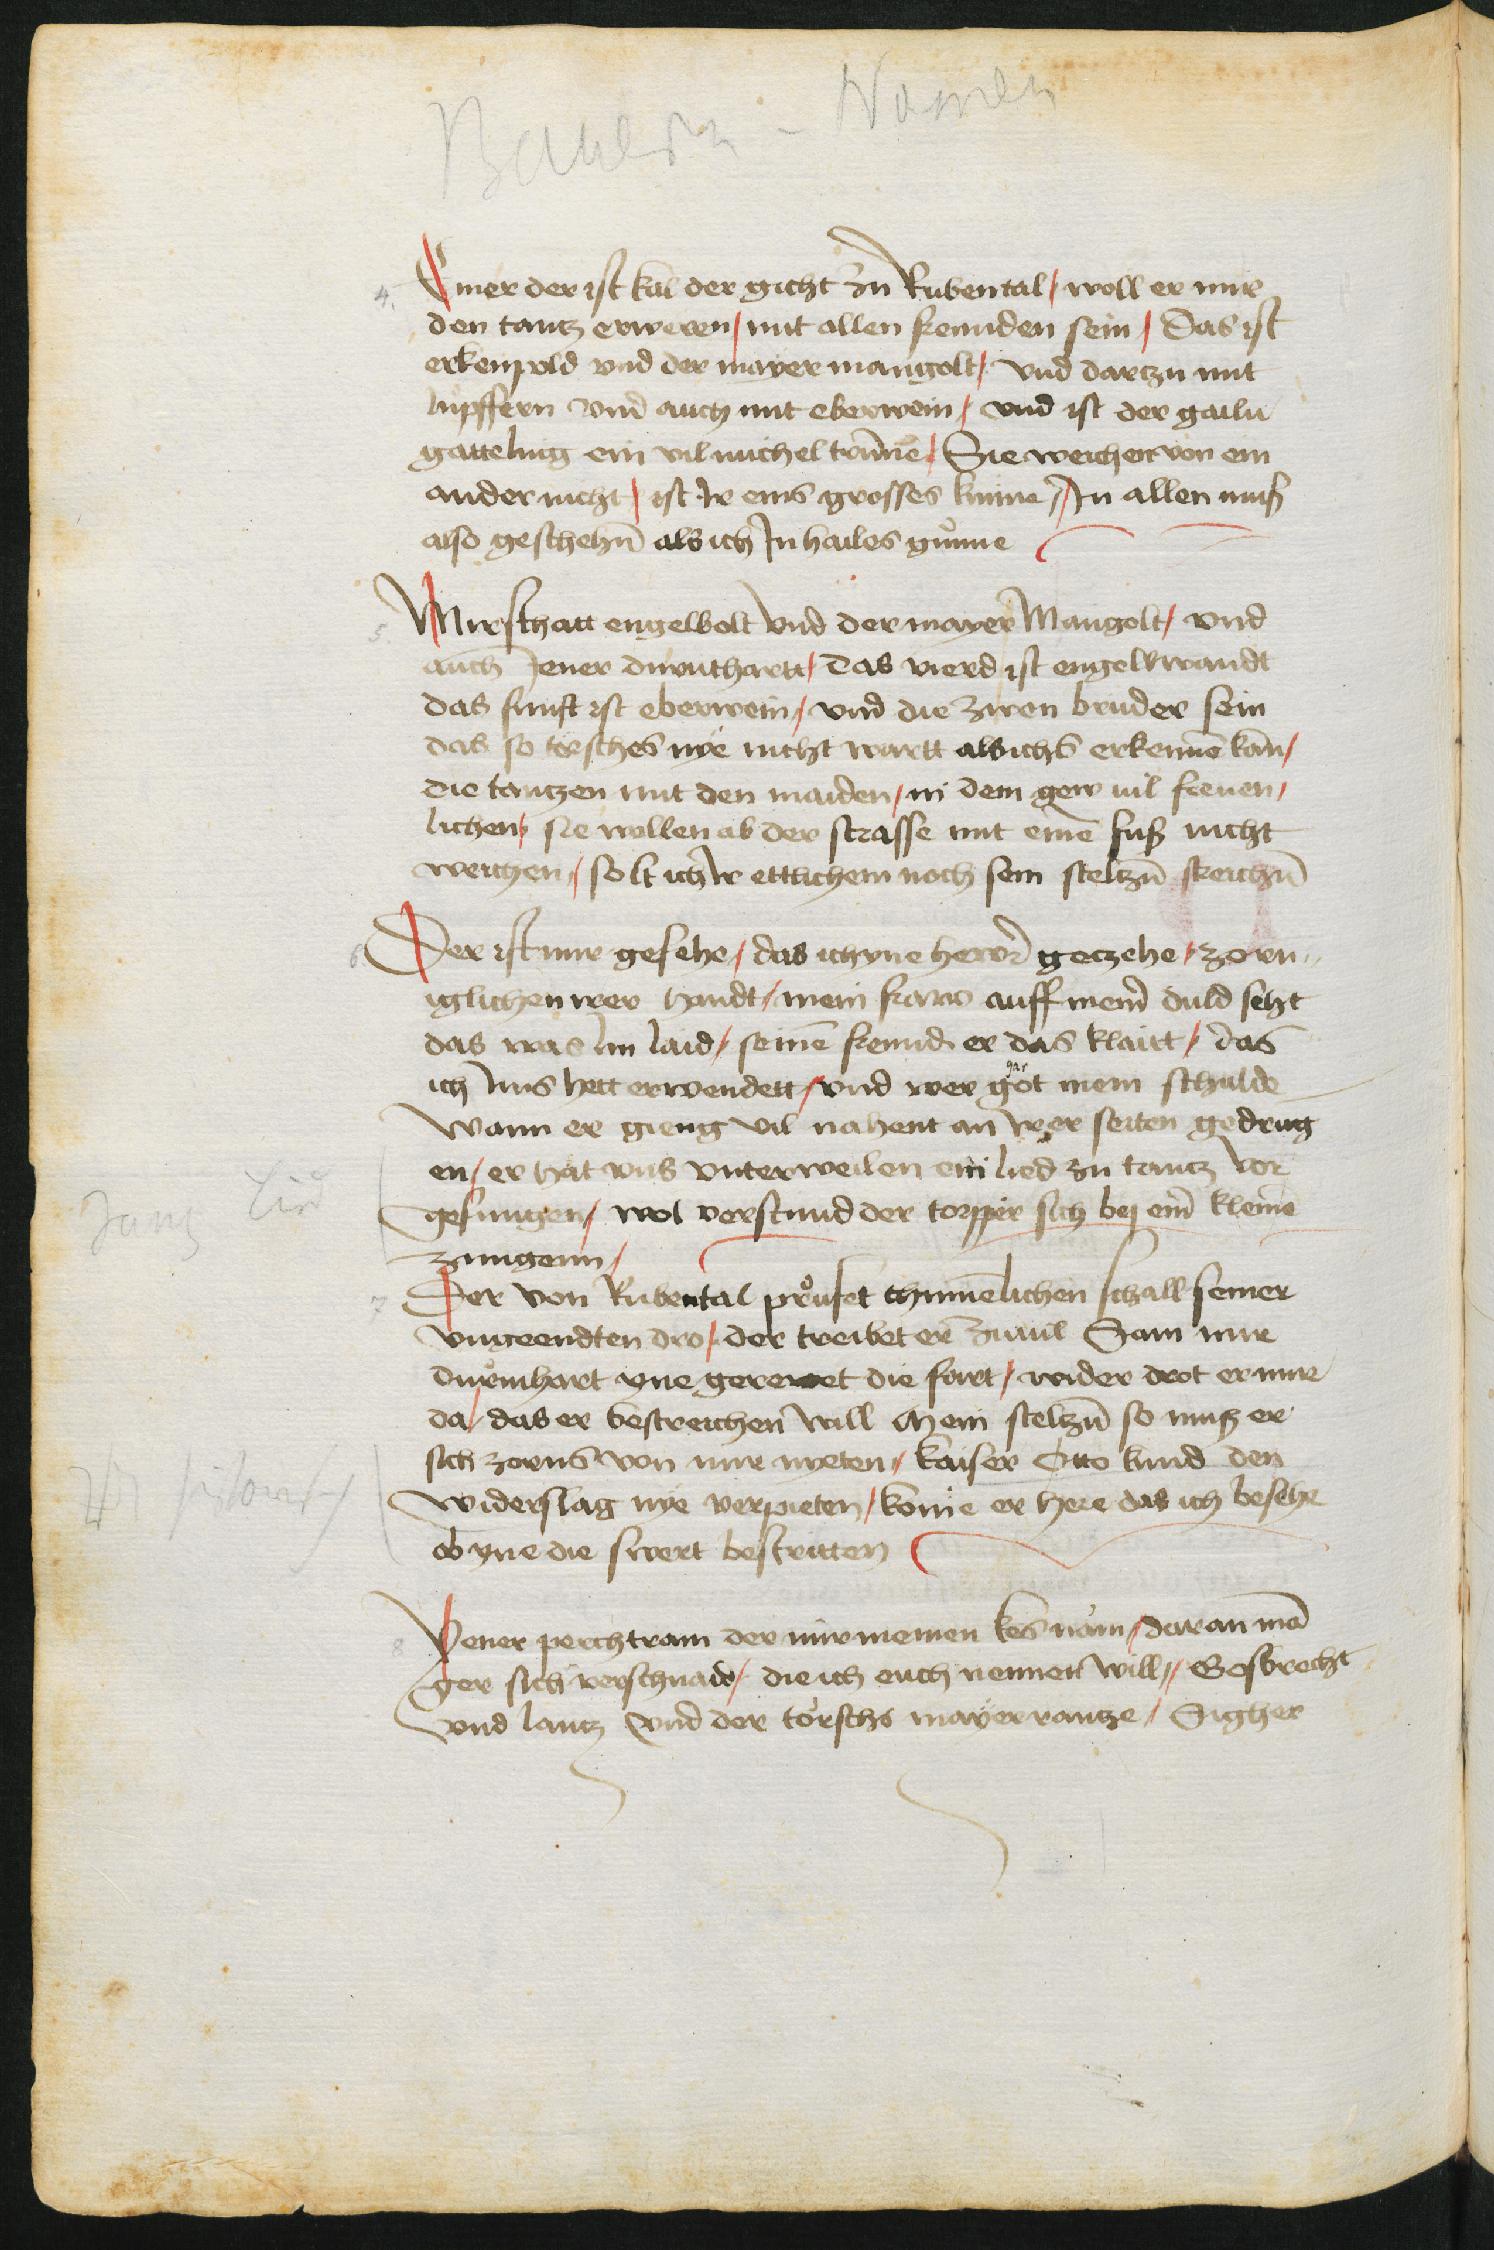 Bauern - Namen
4. Einer der ist kal der gicht zu Rubental / woll er mir
den tantz erweren / mit allen freunden sein / Das ist
erkenpold vnd der mayer mangolt / vnd dartzu mit
lupffern vnd auch mit eberwein / vnd ist der gailn
gatteling ein vil michel trunne / Sie weichen von ein
ander nicht / ist Ir eins grosses kunne / In allen muß
also geschehn̄ als ich In hailes gůnne
5. Mir schatt engelbolt vnd der mayer Mangolt / vnd
auch Jener durinthartt / das vierd ist engelwandt
das funft ist eberwein / vnd die zwen bruder sein
das so tosches nye nicht wartt als ichs erkennē kan /
die tantzen mit den maiden / in dem gew vil freuen /
lichen / sie wollen ab der strasse mit einē fuß nicht
weichen / solt ich Ir ettlichem noch sein steltzn̄ streichn̄
6. Der ist mir gesehe / das ich yne hewr geczehe / zorn
iglichen wer handt / mein fraw auff mein̄ duld seht
das was Im laid / seinē freund er das klaitt / das
ich Ims hett erwendett / vnd wer gar got mein schulde
Wann er gieng vil nahent an Irer seiten gedrug
en / er hat vns vnterweilen ein lied zu tantz vor
Tanz Lied
gesungen / wol verstund der torpper sich bej ein̄ kleinē
zungenn /
7 Der von Rubental průfet thumēlichen schall seiner
vngeendten dro / der treibet er zuuil Sam mir
důrinhart yne gerewet die fart / wider drot er mir
da / das er bestreichen will Mein steltzn̄ so muß er
sich zorns von mir nyeten / kaiser Otto kund den
widerslag nye verpieten / kome er here das ich besehe
ob yne die swert bestritten
8 Yener perchtram der mir meinen kes nam / daran mā
ger sich verschnaid / die ich euch nennen will // Gosbrecht
vnd lantz vnd der törschs mayer rantze / Sigher